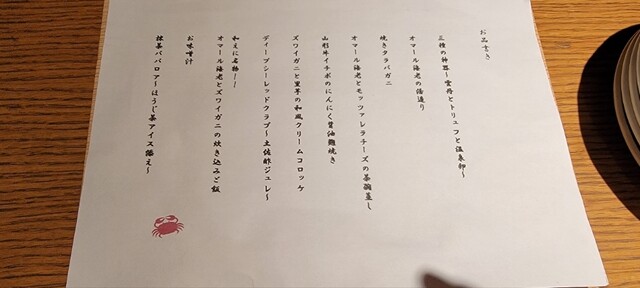 お品書き
三種の神器～雲丹とトリュフと温泉卵～
オマール海老の湯通り
焼きタラバガニ
オマール海老とモッツァレラチーズの茶碗蒸し
山形牛イチボのにんにく醤油麹焼き
ズワイガニと里芋の和風クリームコロッケ
ディープシーレッドクラブ～土佐酢ジュレ～
和えに名物！！
オマール海老とズワイガニの炊き込みご飯
お味噌汁
抹茶ババロア～ほうじ茶アイス添え～